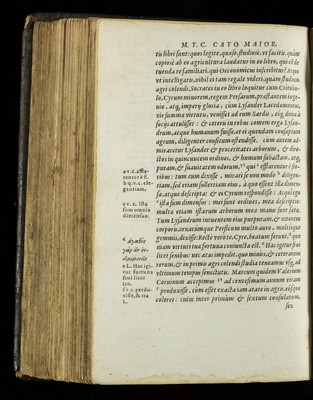 M. T. C. CATO MAIOR.
tii libri sunt: quos legite, quęso studiosè, ut facitis. quàm
copiosè ab eo agricultura laudatur in eo libro, qui est de
tuenda re familiari, qui Oeconomicus inscribitur? Atque
ut intelligatis, nihil ei tam regale videri, quàm studium
agri colendi, Socrates in eo libro loquitur cum Critobu-
lo, Cyrum minorem, regem Persarum, præstantem inge-
nio, atq; imperij gloria, cùm Lysander Lacedæmonius,
vir summæ virtutis, venisset ad eum Sardis, eiq; dona à
socijs attulisset: & ceteris in rebus comem erga Lysan-
drum, atque humanum fuisse, et ei quendam conseptum
agrum, diligenter consitum ostendisse. cùm autem ad-
miraretur Lysander & proceritates arborum, & dire-
ctos in quincuncem ordines, & humum subactam, atq;
puram, & suauitatem odorum, qui efflarentur è flo-
ribus: tum eum dixisse, mirari se non modò diligen-
tiam, sed etiam solertiam eius, à quo essent illa dimen-
sa, atque descripta: & ei Cyrum respondisse: Atqui ego
ista sum dimensus: mei sunt ordines, mea descriptio:
multæ etiam istarum arborum mea manu sunt satæ.
Tum Lysandrum intuentem eius purpuram, & nitorem
corporis, ornatumque Persicum multo auro, multisque
gemmis, dixisse: Rectè verò te Cyre, beatum ferunt, quo
niam virtuti tuæ fortuna coniuncta est. Hac igitur frui
licet senibus: nec ætas impedit, quo minus, & ceterarum
rerum, & in primis agri colendi studia teneamus usq; ad
ultimum tempus senectutis. Marcum quidem Valerium
Coruinum accepimus ad centesimum annum vitam
produxisse, cùm esset exacta iam ætate in agris, eosque
coleret: cuius inter primum & sextum consulatum,
sex